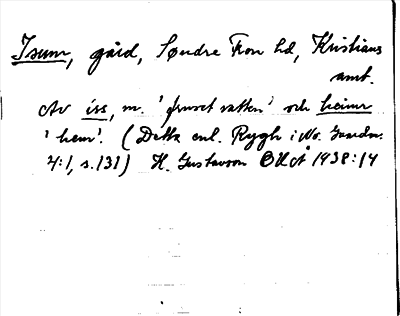 Isum, gård, Søndre Fron hd, Kristians
amt.
Av íss, m. 'fruset vatten' och heimr
'hem'. (Detta enl. Rygh i No. Gaardn.
4:1, s. 131) H. Gustavson 1938:14